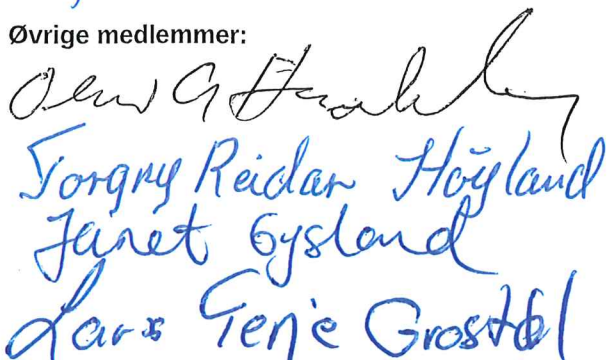 Øvrige medlemmer:
Torgny Reidar Höyland
Janet Gysland
Lars Terje Grostøl